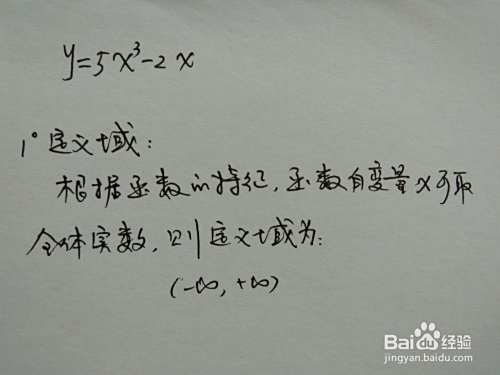 y=5x³-2x
1° 定义域：
根据函数的特征，函数自变量x可取
全体实数，则定义域为：
(-∞,+∞)
Baidu经验
jingyan.baidu.com